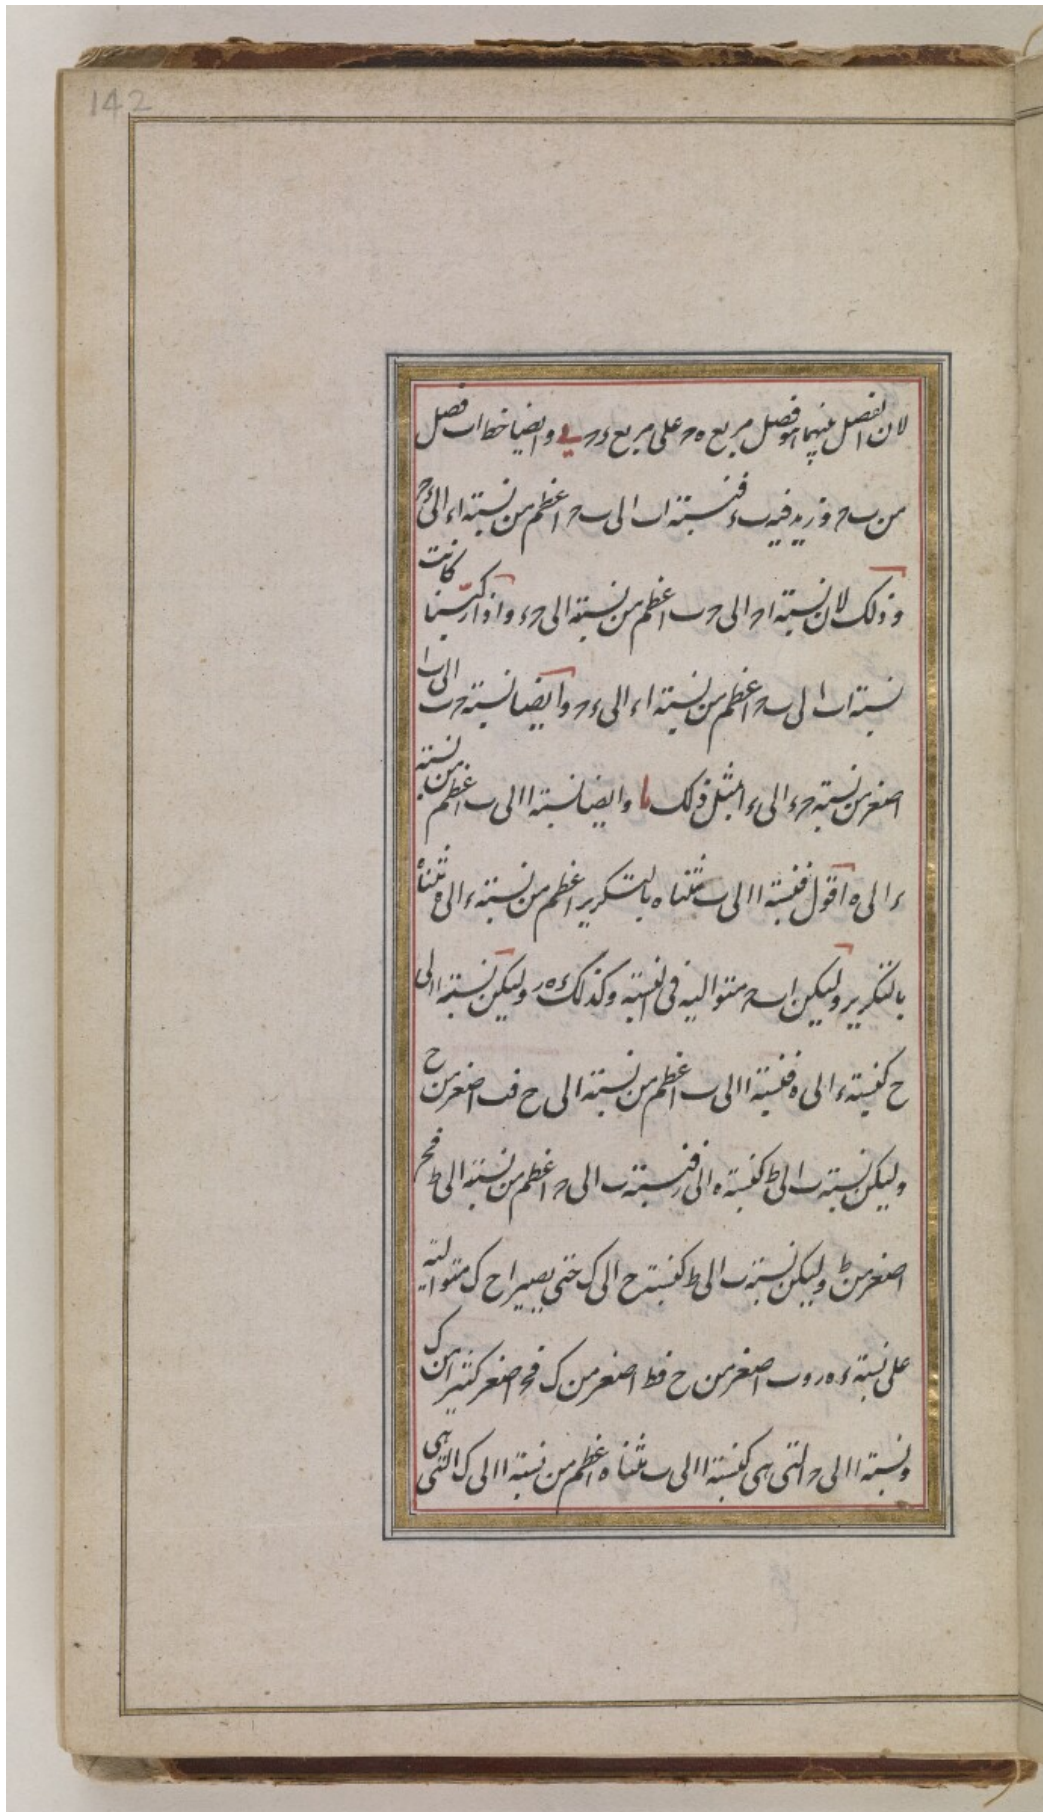 142
لان الفصل بينهما هو فصل مربع ه ح على مربع ء ح ى وايضا خط اب فصل
من ب ح وزيد فيه ب ء فنسبة اب الى ب ح اعظم من نسبة اء الى ء ح
وذلك لان نسبة اح الى ح ب اعظم من نسبة الى ح ء واذا ركبنا كانت
نسبة اب الى ب ح اعظم من نسبة اء الى ء ح وايضا نسبة ح ب الى ب ا
اصغر من نسبة ح ء الى ء ا بمثل ذلك يا وايضا نسبة ا الى ب اعظم من نسبة
ء الى ه اقول فنسبة ا الى ب مثناه بالتكرير اعظم من نسبة ء الى ه مثناه
بالتكرير وليكن ا ب ح متوالية فى النسبة وكذلك ء ه ر وليكن نسبة ا الى
ح كنسبة ء الى ه فنسبة ا الى ب اعظم من نسبة ا الى ح فب اصغر من ح
وليكن نسبة ب الى ط كنسبة ه الى ر فنسبة ب الى ح اعظم من نسبة الى ط فح
اصغر من ط وليكن نسبة ب الى ط كنسبة ح الى ك حتى يصير ا ح ك متوالية
على نسبة ء ه ر وب اصغر من ح فط اصغر من ك فح اصغر كثيرا من ك
ونسبة ا الى ح التى هى كنسبة ا الى ب مثناه اعظم من نسبة ا الى ك التى هى